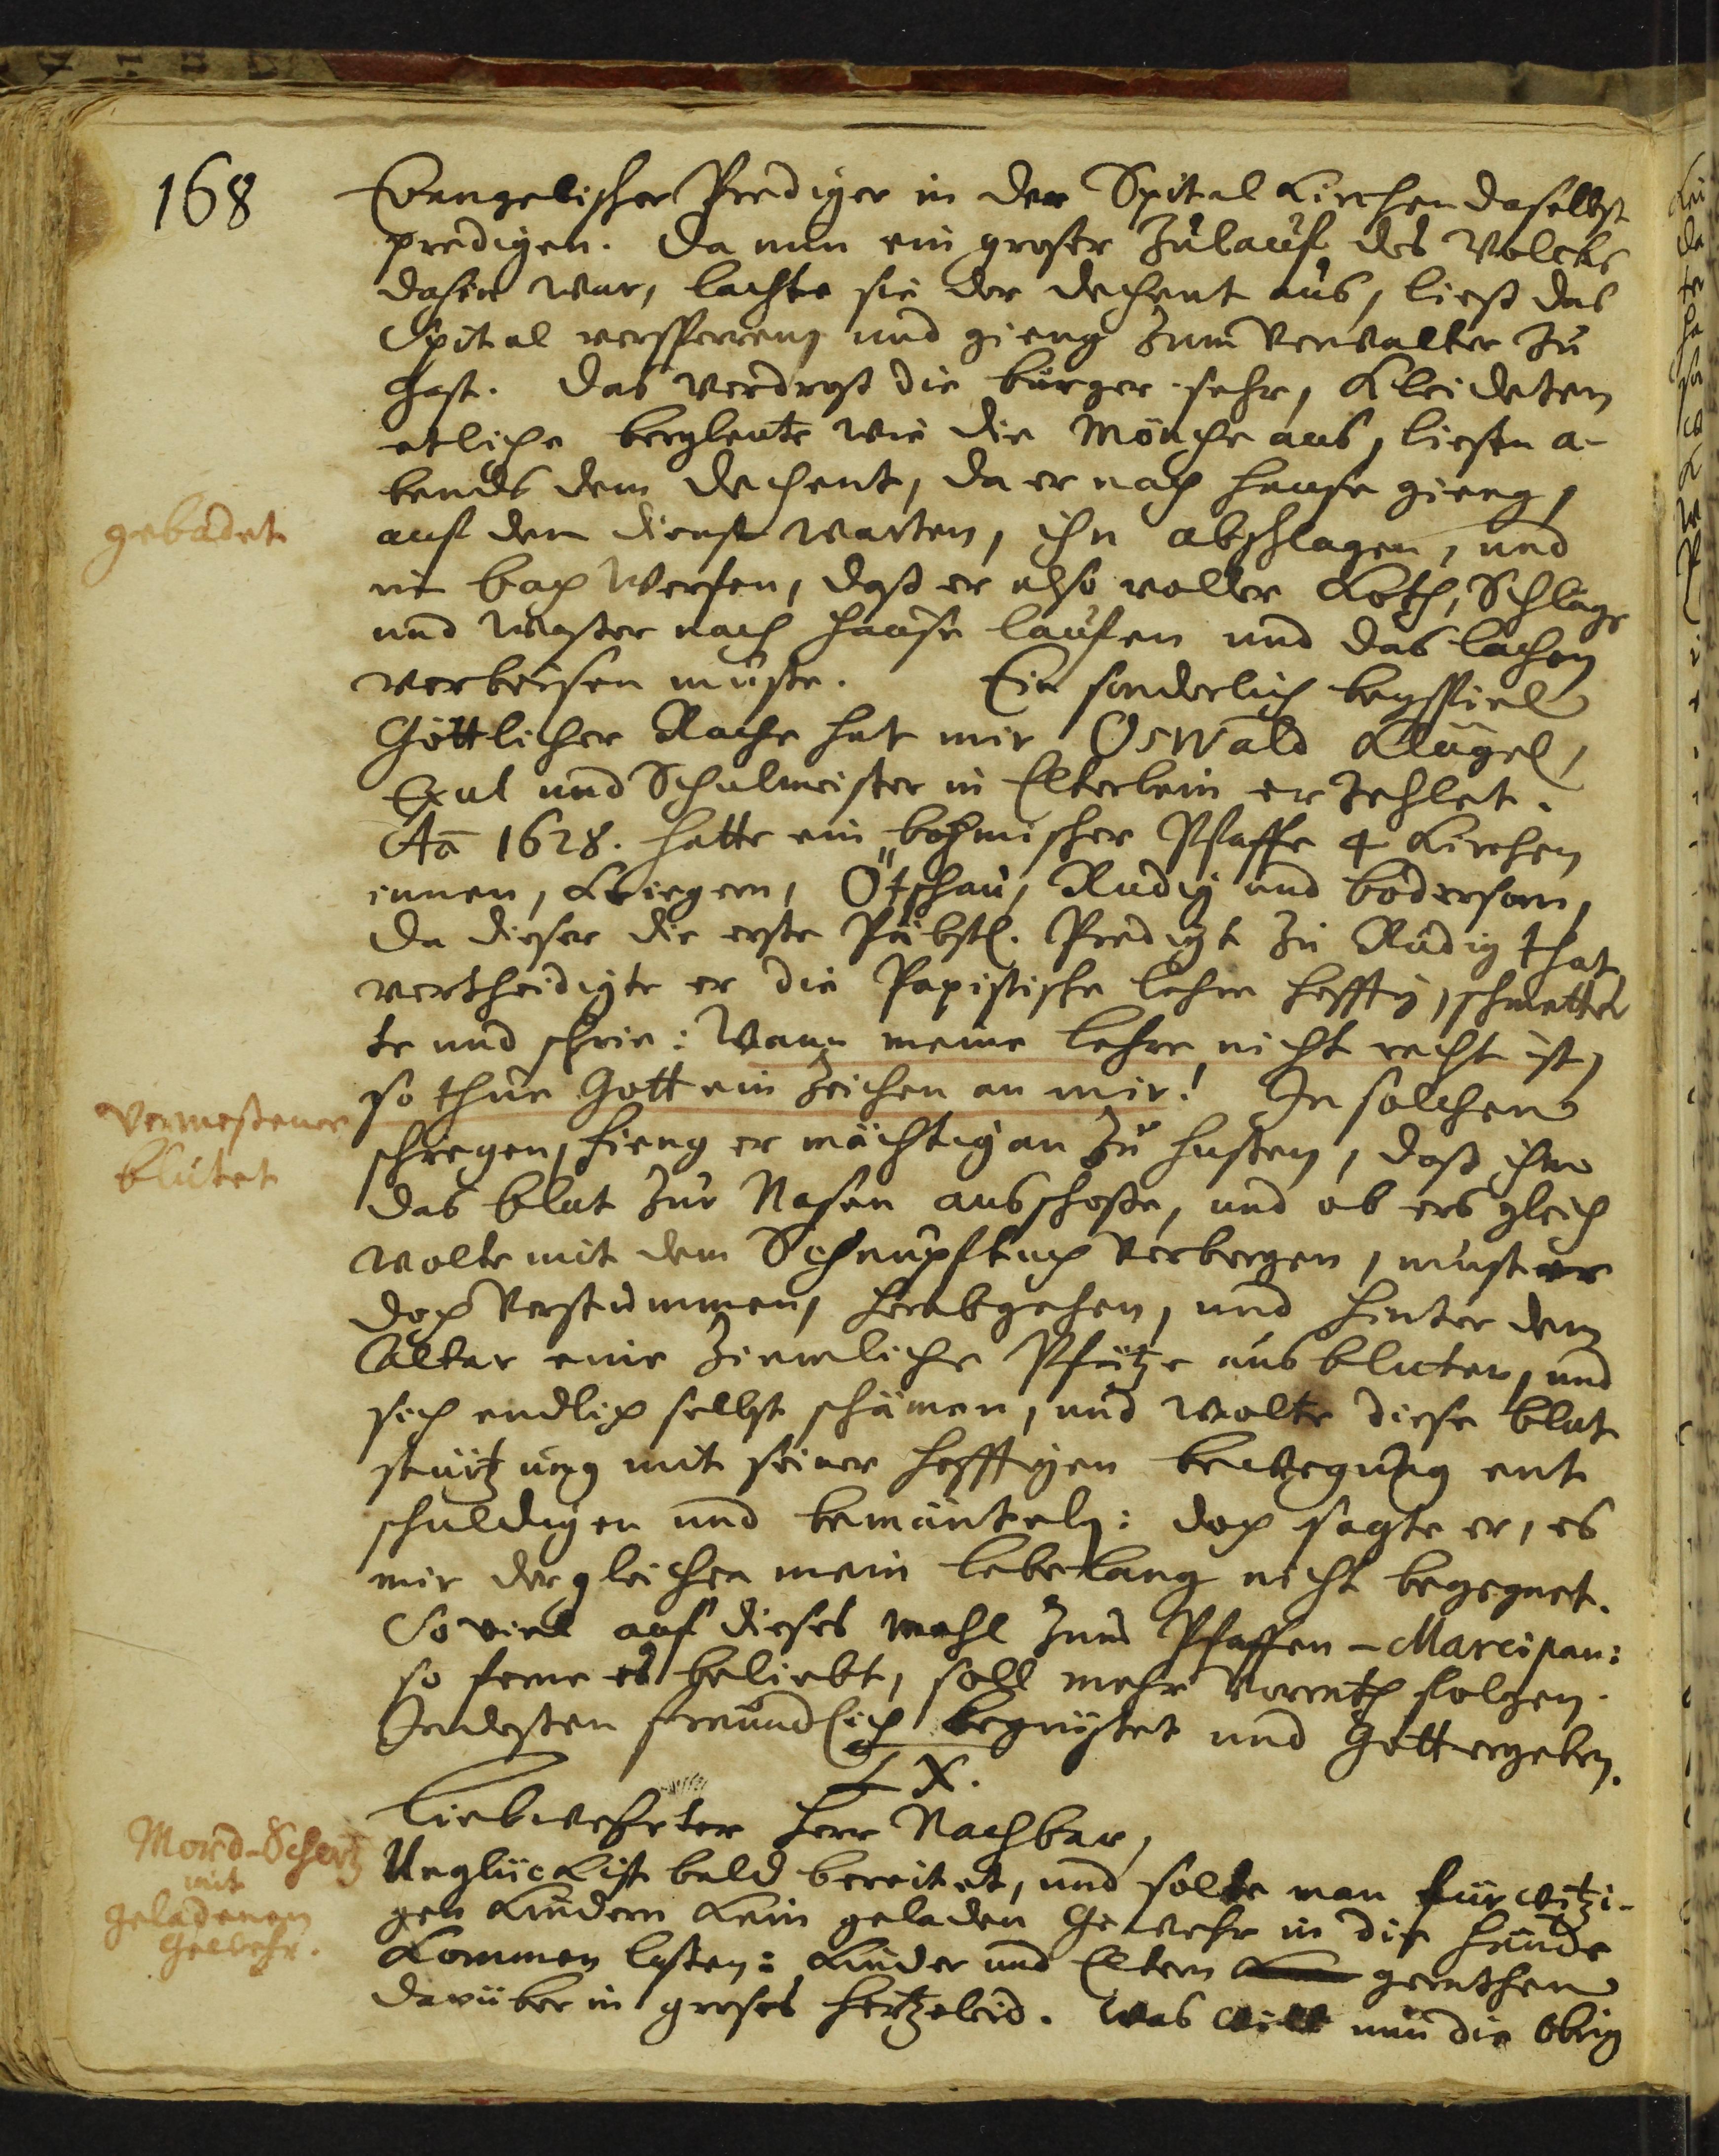 168
Evangelischer Prediger in der Spital Kirchen daselbst
predigen. Da nun ein groser Zulauf des Volcks
dahin war, lachte sie der Dechent aus, ließ das
Spital versperren, und gieng zum Verwalter zu
Gast. Das verdroß die bürger sehr, Kleideten
etliche bergleute wie die Mönche aus, liesen a-
bends dem Dechent, da er nach Hause gieng,
gebadet
auf den Dienst warten, ihn abschlagen, und
in bach werfen, daß er also voller Koth, Schläge
und waßer nach Hause laufen und das lachen
verbeisen muste. Ein sonderlich beyspiel
Göttlicher Rache hat mir Oswald Klügel,
Exul und Schulmeister in Elterlein erzehlet.
Aõ 1628. hatte ein böhmischer Pfaffe 4 Kirchen
innen, Kriegern, Ötschau, Rudig und bodersam,
Da dieser die erste Päbstl. Predigt zu Rudig that,
vertheidigte er die Papistische lehre hefftig, schmetter
te und schrie: Wann meine lehre nicht recht ist,
so thue Gott ein Zeichen an mir! In solchen
Vermeßener
blutet
schreyen, fieng er mächtig an zu husten, daß ihm
das blut zur Nasen ausschoße, und ob ers gleich
wolte mit dem Schnupftuch verbergen, muste er
doch verstummen, herabgehen, und hinter dem
Altar eine ziemliche Pfütze ausbluten, und
sich endlich selbst schämen, und wolte diese blut
stürtzung mit seiner hefftigen bewegung ent
schuldigen und bemänteln: doch sagte er, es
mir dergleichen mein lebelang nicht begegnet.
Soviel auf dieses mahl zum Pfaffen-Marcipan:
so ferne es beliebt, soll mehr Vorrath folgen.
Indeßen freundlich begrüßet und Gott ergeben.
LX.
Liebwehrter Herr Nachbar,
Mord-Schertz
mit
geladenen
Gewehr.
Unglück ist bald bereitet, und solte man fürwitzi-
gen Kindern kein geladen Gewehr in die Hände
kommen laßen: Kinder und Eltern gerathen
darüber in groses Hertzeleid. Was will nun die Obrig